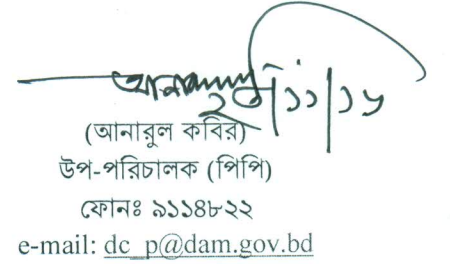 ২০/১১/১৬
(আনারুল কবির)
উপ-পরিচালক (পিপি)
ফোনঃ ৯১১৪৮২২
e-mail: dc_p@dam.gov.bd